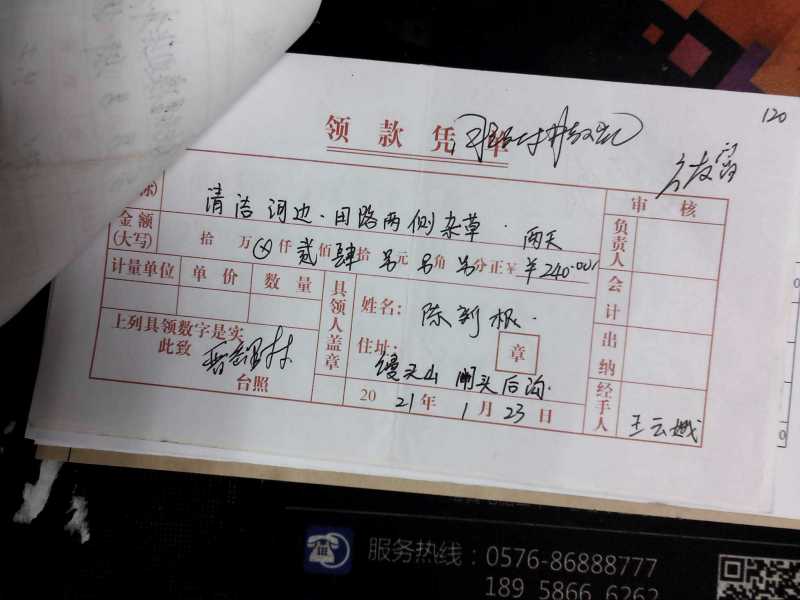 120
领款凭单
清洁河边.田路两侧杂草. 两天
审核
金额(大写) 拾 万 ⊗ 仟 贰 佰 肆 拾 另 元 另 角 另 分 正 ¥ 240.00
负责人
计量单位 单价 数量
具领人盖章
姓名: 陈新根.
会计
上列具领数字是实
此致
台照
住址: 章
馒头山 闸头后沟.
出纳
2021年 1月 23日
经手人 王云
服务热线:0576-86888777
189 5866 6262